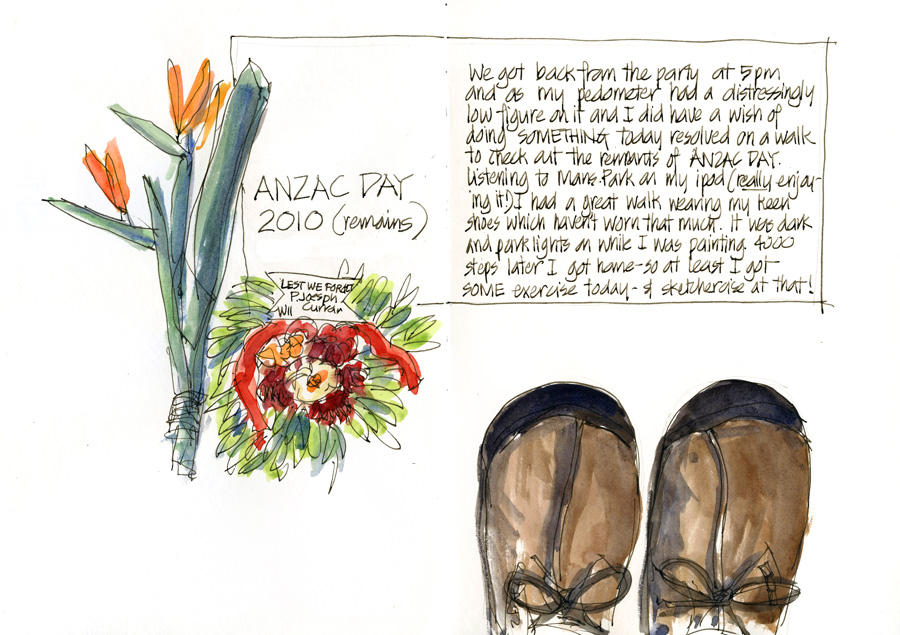 ANZAC DAY
2010 (remains)
LEST WE FORGET
P. Joesph
Will Curran
We got back from the party at 5pm
and as my pedometer had a distressingly
low figure on it and I did have a wish of
doing SOMETHING today resolved on a walk
to check out the remnants of ANZAC DAY.
Listening to Mans. Park on my ipod (really enjoy-
ing it!) I had a great walk wearing my keen
shoes which haven't worn that much. It was dark
and park lights on while I was painting. 4000
steps later I got home - so at least I got
SOME exercise today - & sketchercise at that!